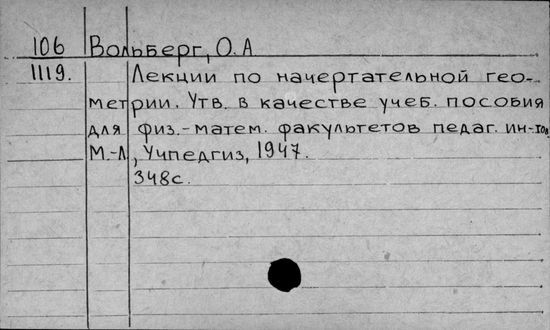 106 Вольберг, О.А
1119. Лекции по начертательной гео-
метрии. Утв. в качестве учеб. пособия
для физ.-матем. факультетов педаг. ин-тов
М.-Л., Учпедгиз, 1947.
348с.